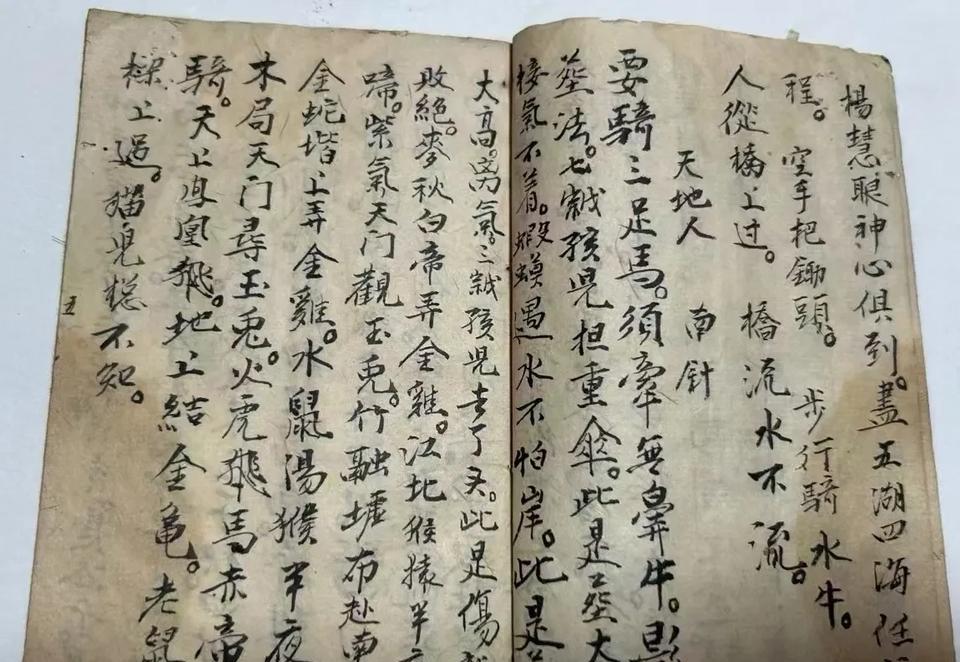 楊慧眼神心俱到。盡五湖四海任
程。空手把鋤頭。步行騎水牛。
人從橋上过。橋流水不流。
天地人 南針
要騎三足馬。須牽無鼻牛。
葬法。七歲孩児担重傘。此是葬大
接氣不着。蝦蟆過水不怕岸。此是
大高。离氣。三歲孩児去了头。此是傷
敗絕。麥秋白帝弄金雞。江北猴猿半
啼。紫氣天门觀玉兎。竹融墟布赴南
金蛇堦上弄金雞。水鼠湯猴半夜
木局天门尋玉兎。火虎飛馬赤帝
騎。天上鳳凰飛。地上結金亀。老鼠
樑上過。猫児總不知。
五